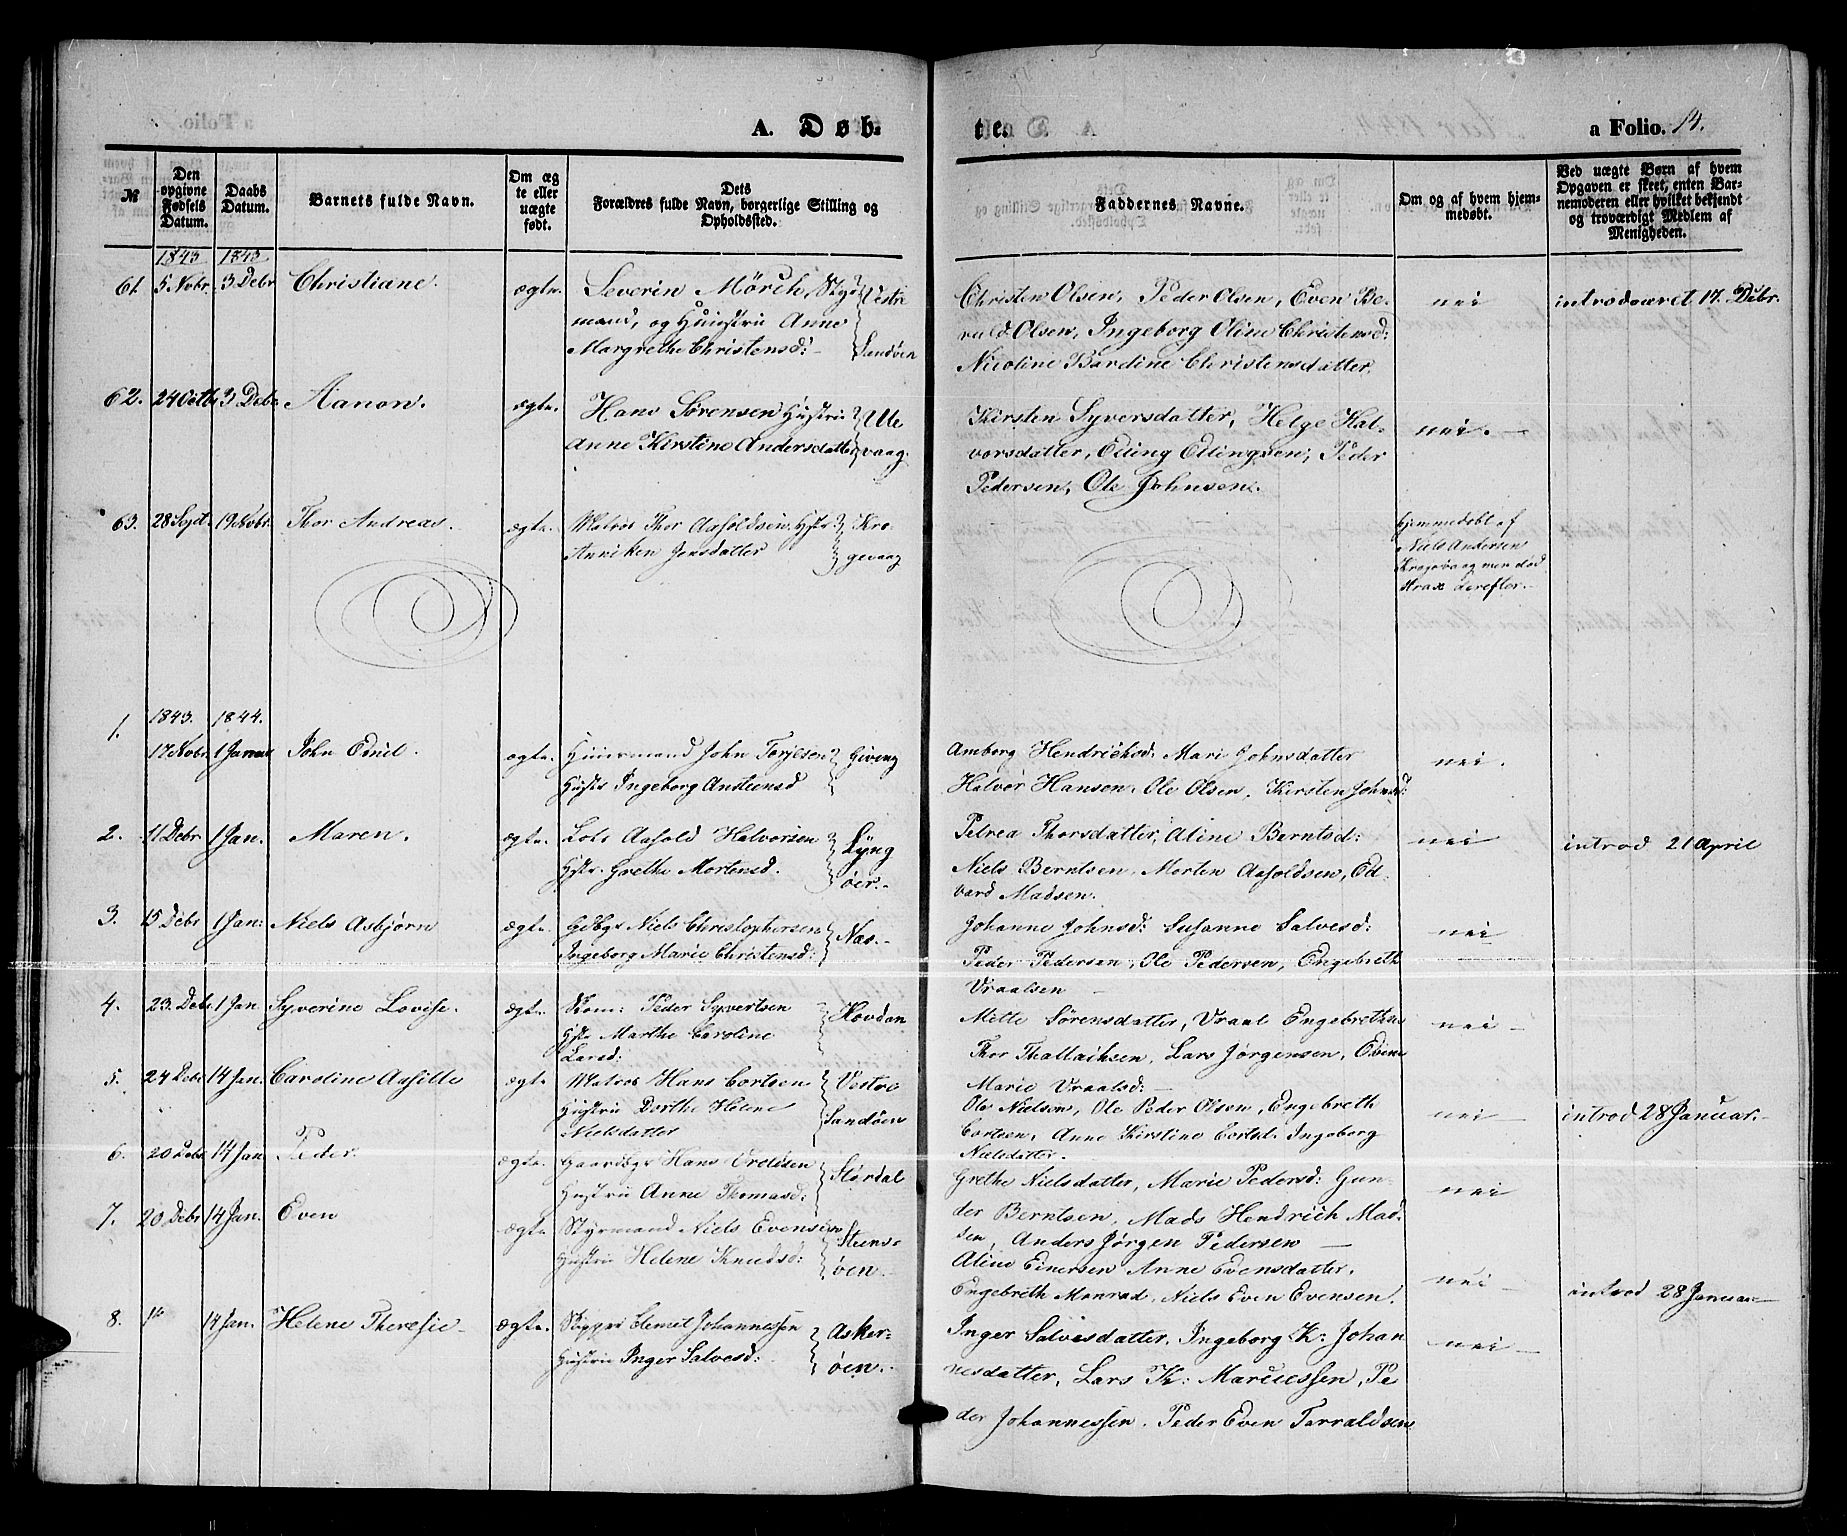 A. Døb-
te.
a Folio. 14.
№
Den opgivne Fødsels Datum.
Daabs Datum.
Barnets fulde Navn.
Om ægte eller uægte født.
Dets Forældres fulde Navn, borgerlige Stilling og Opholdsted.
Faddernes Navne.
Om og af hvem hjemmedøbt.
Ved uægte Børn af hvem Opgaven er skeet, enten Barnemoderen eller hvilket bekjendt og troværdigt Medlem af Menigheden.
1843 1843
61. 5 Nobr. 3 Debr Christiane. ægte. Severin Mörch, Styr Vestre
mand, og Hustru Anne
Margrethe Christensd: Sandøen
Christen Olsen, Peder Olsen, Even Be-
rald Olsen, Ingeborg Oline Christensd:
Nicoline Bardine Christensdatter.
nei introduceret 17. Debr.
62. 24 Octb 3 Debr Aanon. ægte. Hans Sørensen Hustru Ule
Anne Kirstine Andersdatter vaag.
Kirsten Syversdatter, Helge Hal-
vorsdatter, Edling Edlingsen, Peder
Pedersen, Ole Johnsen.
nei.
63. 28 Sept. 19 Nobr. Thor Andreas. ægte. Matros Thor Aasoldsen, Hstr Kro
Anniken Jensdatter gevaag
hjemmedøbt af
Niels Andersen
Krogevaag men død
strax derefter.
1843. 1844.
1. 17 Nobr. 1 Januar John Emil. ægte. Huusmand John Torjesen Giving
Hustr Ingeborg Anstensd
Amborg Hendrichsd: Mari Johnsdatter
Halvor Hansen, Ole Olsen, Kirsten Johnsd:
nei.
2. 11 Debr 1 Jan. Maren. ægte. Lots Aasold Halvorsen Lyng
Hstr. Grethe Mortensd. øer.
Petrea Thorsdatter, Aline Berntsd:
Niels Berntsen, Morten Aasoldsen, Ed-
vard Madsen.
nei introd 21 April
3. 15 Debr 1 Jan: Niels Asbjørn ægte. Gdbgr Niels Christophersen Næs.
Ingeborg Marie Christensd:
Johanne Johnsd: Susanne Salvesd:
Peder Pedersen, Ole Pedersen, Engebreth
Vraalsen
nei
4. 23 Debr 1 Jan Syverine Lovise. ægte. Tøm: Peder Syvertsen Hovdan
Hstr Marthe Caroline
Larsd:
Mette Sørensdatter, Vraal Engebrethsen
Thor Thallachsen, Lars Jørgensen, Edine
Marie Vraalsd:
nei
5. 24 Debr 14 Jan. Caroline Aasille ægte Matros Hans Cortsen Vestre
Hustru Dorthe Helene Sandøen
Nielsdatter
Ole Nielsen, Ole Peder Olsen, Engebreth
Cortsen, Anne Kirstine Cortsd. Ingeborg
Nielsdatter.
nei introd 28 Januar.
6. 20 Debr 14 Jan Peder. ægte. Gaardbgr Hans Stördal
Hustru Anne Thomasd:
Grethe Nielsdatter, Marie Pedersd: Gun-
der Berntsen, Mads Hendrich Mad-
sen, Anders Jörgen Pedersen
nei
7. 20 Debr 14 Jan. Even ægte. Styrmand Niels Evensen Steens-
Hustru Helene Knudsd: öen.
Aline Einersen Anne Evensdatter.
Engebreth Monrad, Niels Even Evensen.
nei introd 28 Januar
8. 14 Jan. Helene Theresie ægte. Skipper Clemet Johannessen Asker-
Hustru Inger Salvesd: öen.
Inger Salvesdatter, Ingeborg K: Johan
nesdatter, Lars K: Marcussen, Pe
der Johannessen. Peder Even Tarraldsen
nei